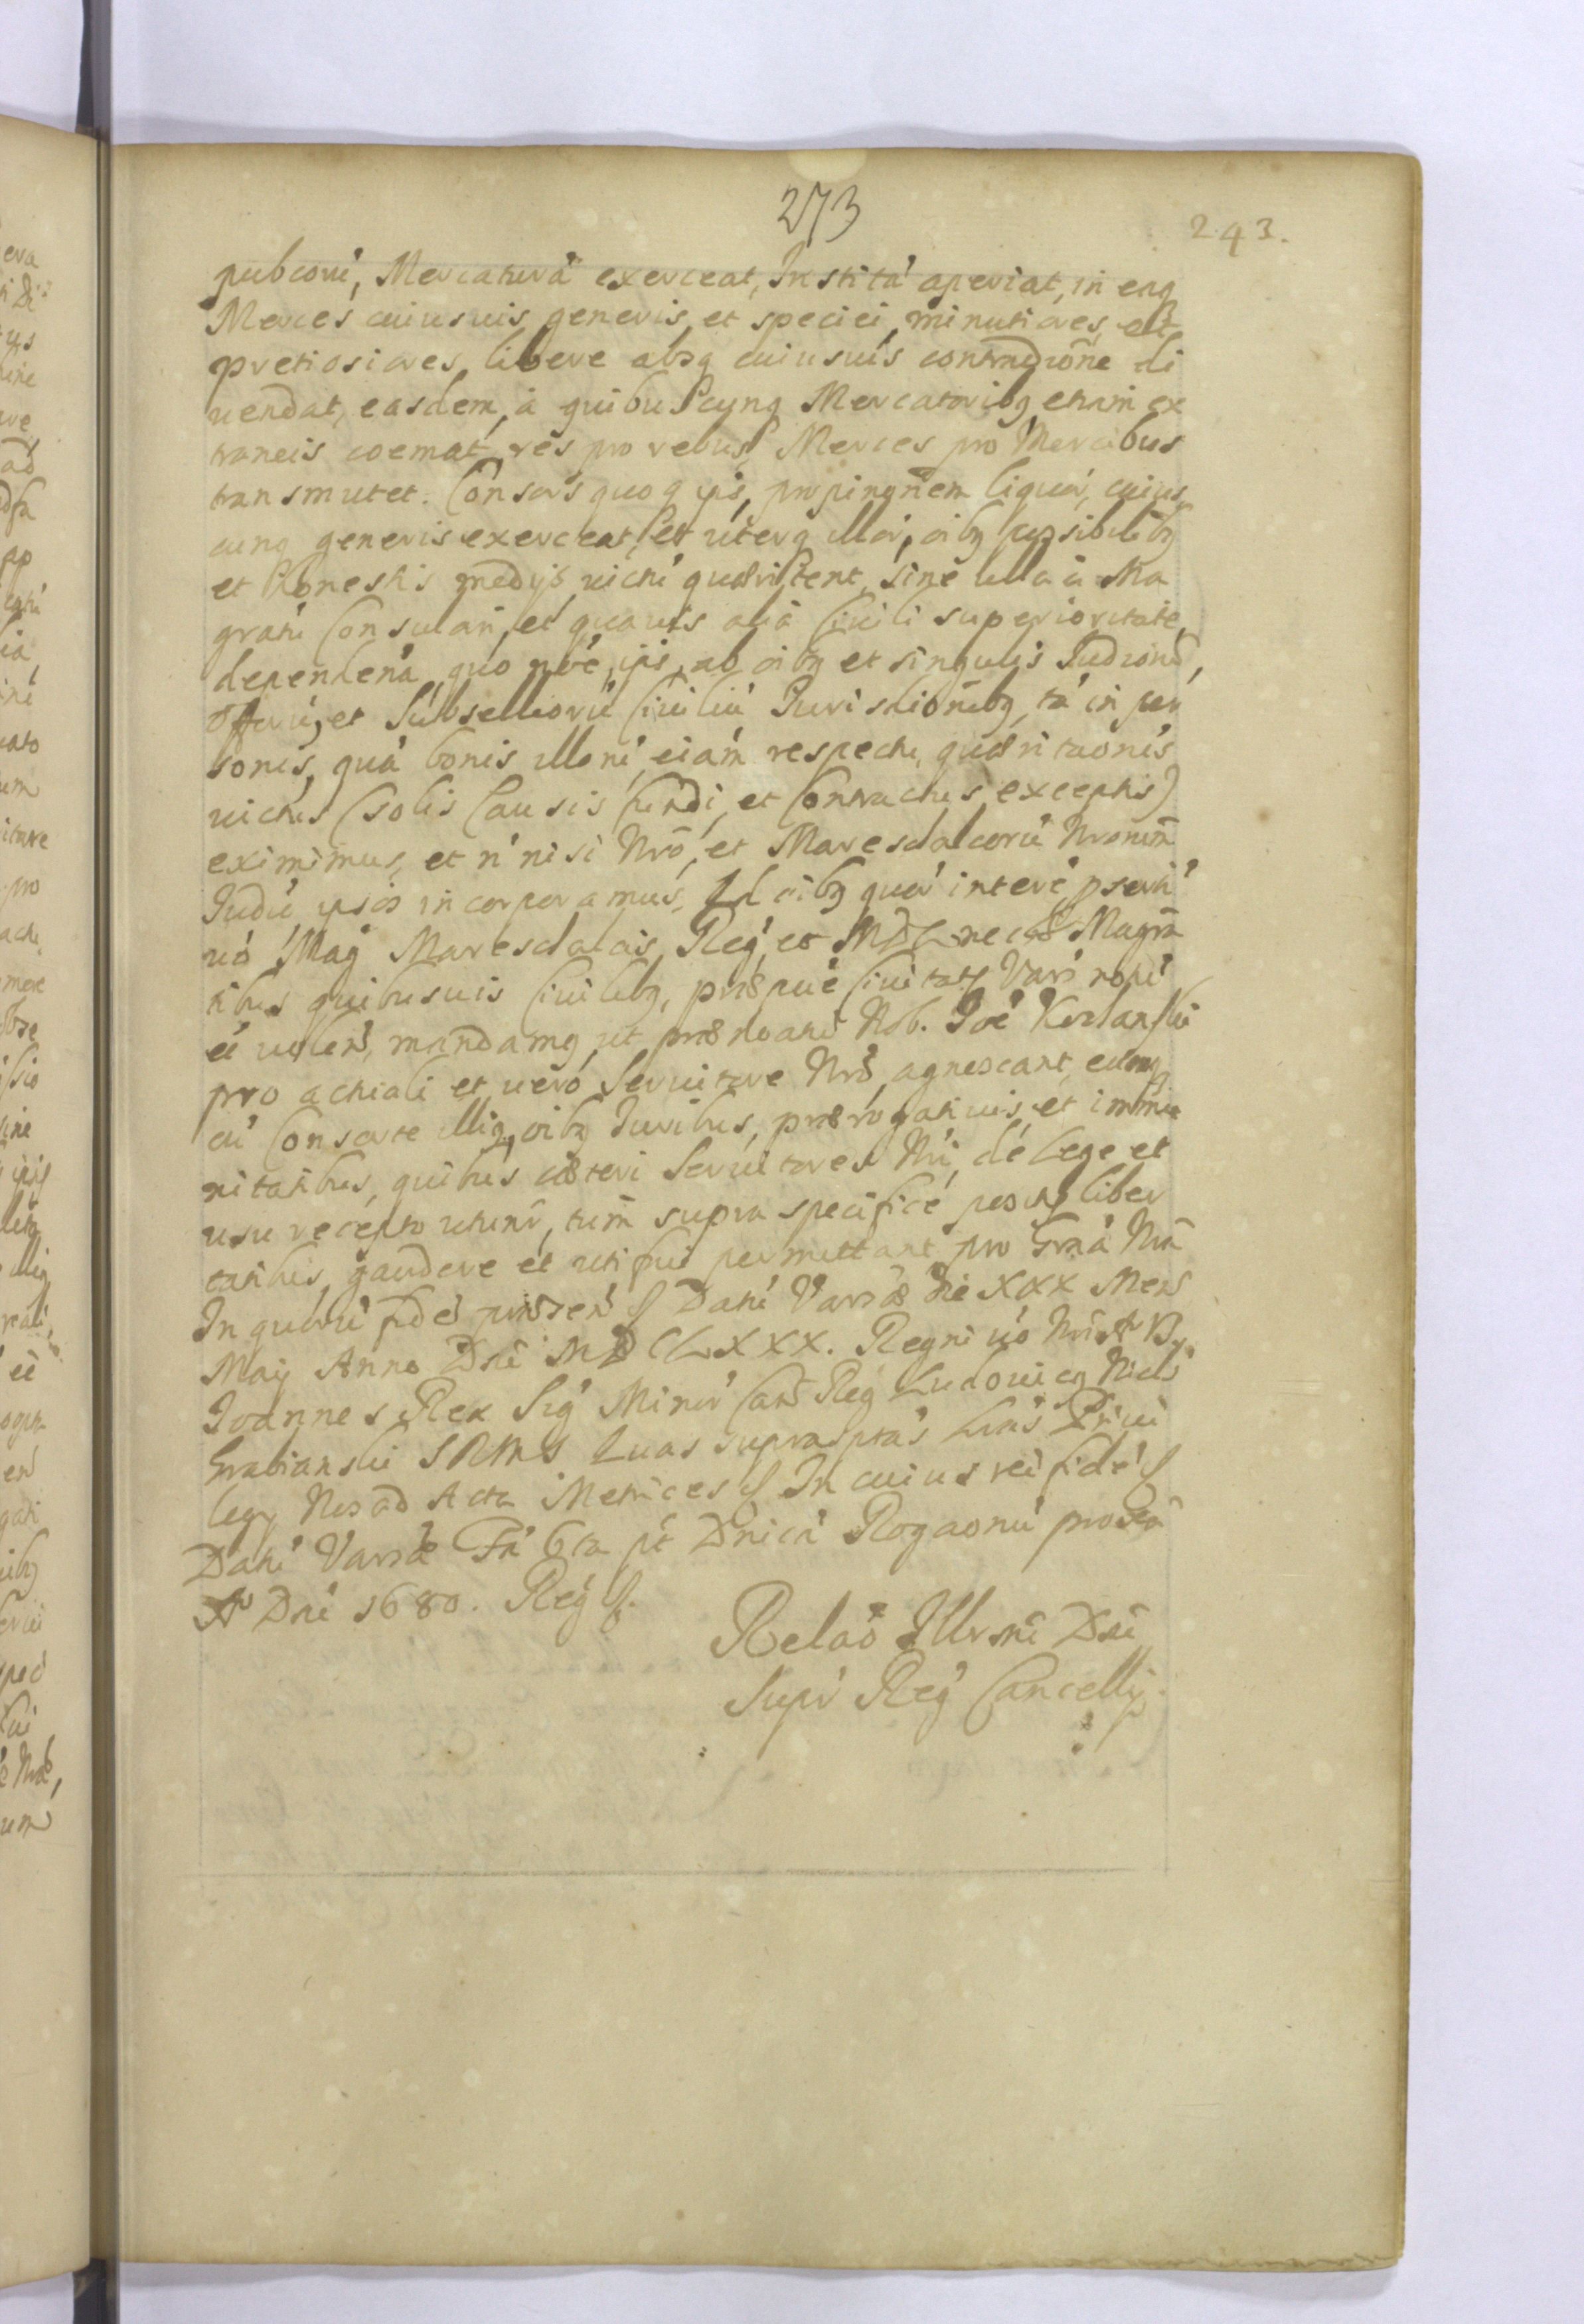 273
243.
pubcoru, Mercatura exerceat, Instita aperiat, in eaq
Merces cuiusuis generis, et speciei, minutiores, et
pretiosiores, libere absq cuiusuis contradione di
uendat, easdem, à quibuscunq Mercatoribq etiam ex
traneis coemat, res pro rebus, Merces pro Mercibus
transmutet. Consors quoq ips, propinonem liquor, cuius
cunq generis exerceat, et uterq illor, oibq possibilibq
et honestis medijs uictu quæritent, sine ulla à Ma
gratu Consulari, et quauis alia Ciuili superioritate
dependena, quo noe, ips, ab oibq et singulis Iudiorū,
Offoru, et Subselliorū Ciuiliū Iurisdionibq, tà in per
sonis, quà bonis illoru, eiam respectu, quæritaonis
uictus (solis Causis fundi, et Contractus exceptis)
eximimus, et n nisi Nro, et Maresdalcorū Nrorum
Iudiu ipsos incorporamus. Id oibq quor intere, pserti
uò Mag Maresdalcis Reg, et MDL nec no Magra
tibus quibusuis Ciuilibq, præpue Ciuitatis Vars noni
et uolen, mandamq, ut prænoanu Nob. Ioe
pro actuali et uero Seruitore Nrō, agnoscant, eumq
cu Consorte illiq, oibq Iuribus, prærogatiuis, et immu
nitatibus, quibus cæteri Seruitores Nri, de Lege et
usu recepto utunr, tum supra specifice positis liber
tatibus, gaudere et uti frui permittant, pro Graa Nra
In quoru fide præsen Datu Varsæ die XXX Mens
Maij Anno Dni MDCLXXX. Regni uò Nri
Ioannes Rex Sig Minor Can Reg Ludouicq Nicls
Grabianski SRMS Quas suprasptas Lras Priui
legy Nos ad Acta Metrices In cuius rei fide
Datu Varsæ Fa 6ta pt Dnica Rogaonu proxa
Aō Dni 1680. Reg
Relaō Illrmi Dni
Supr Reg Cancelly.